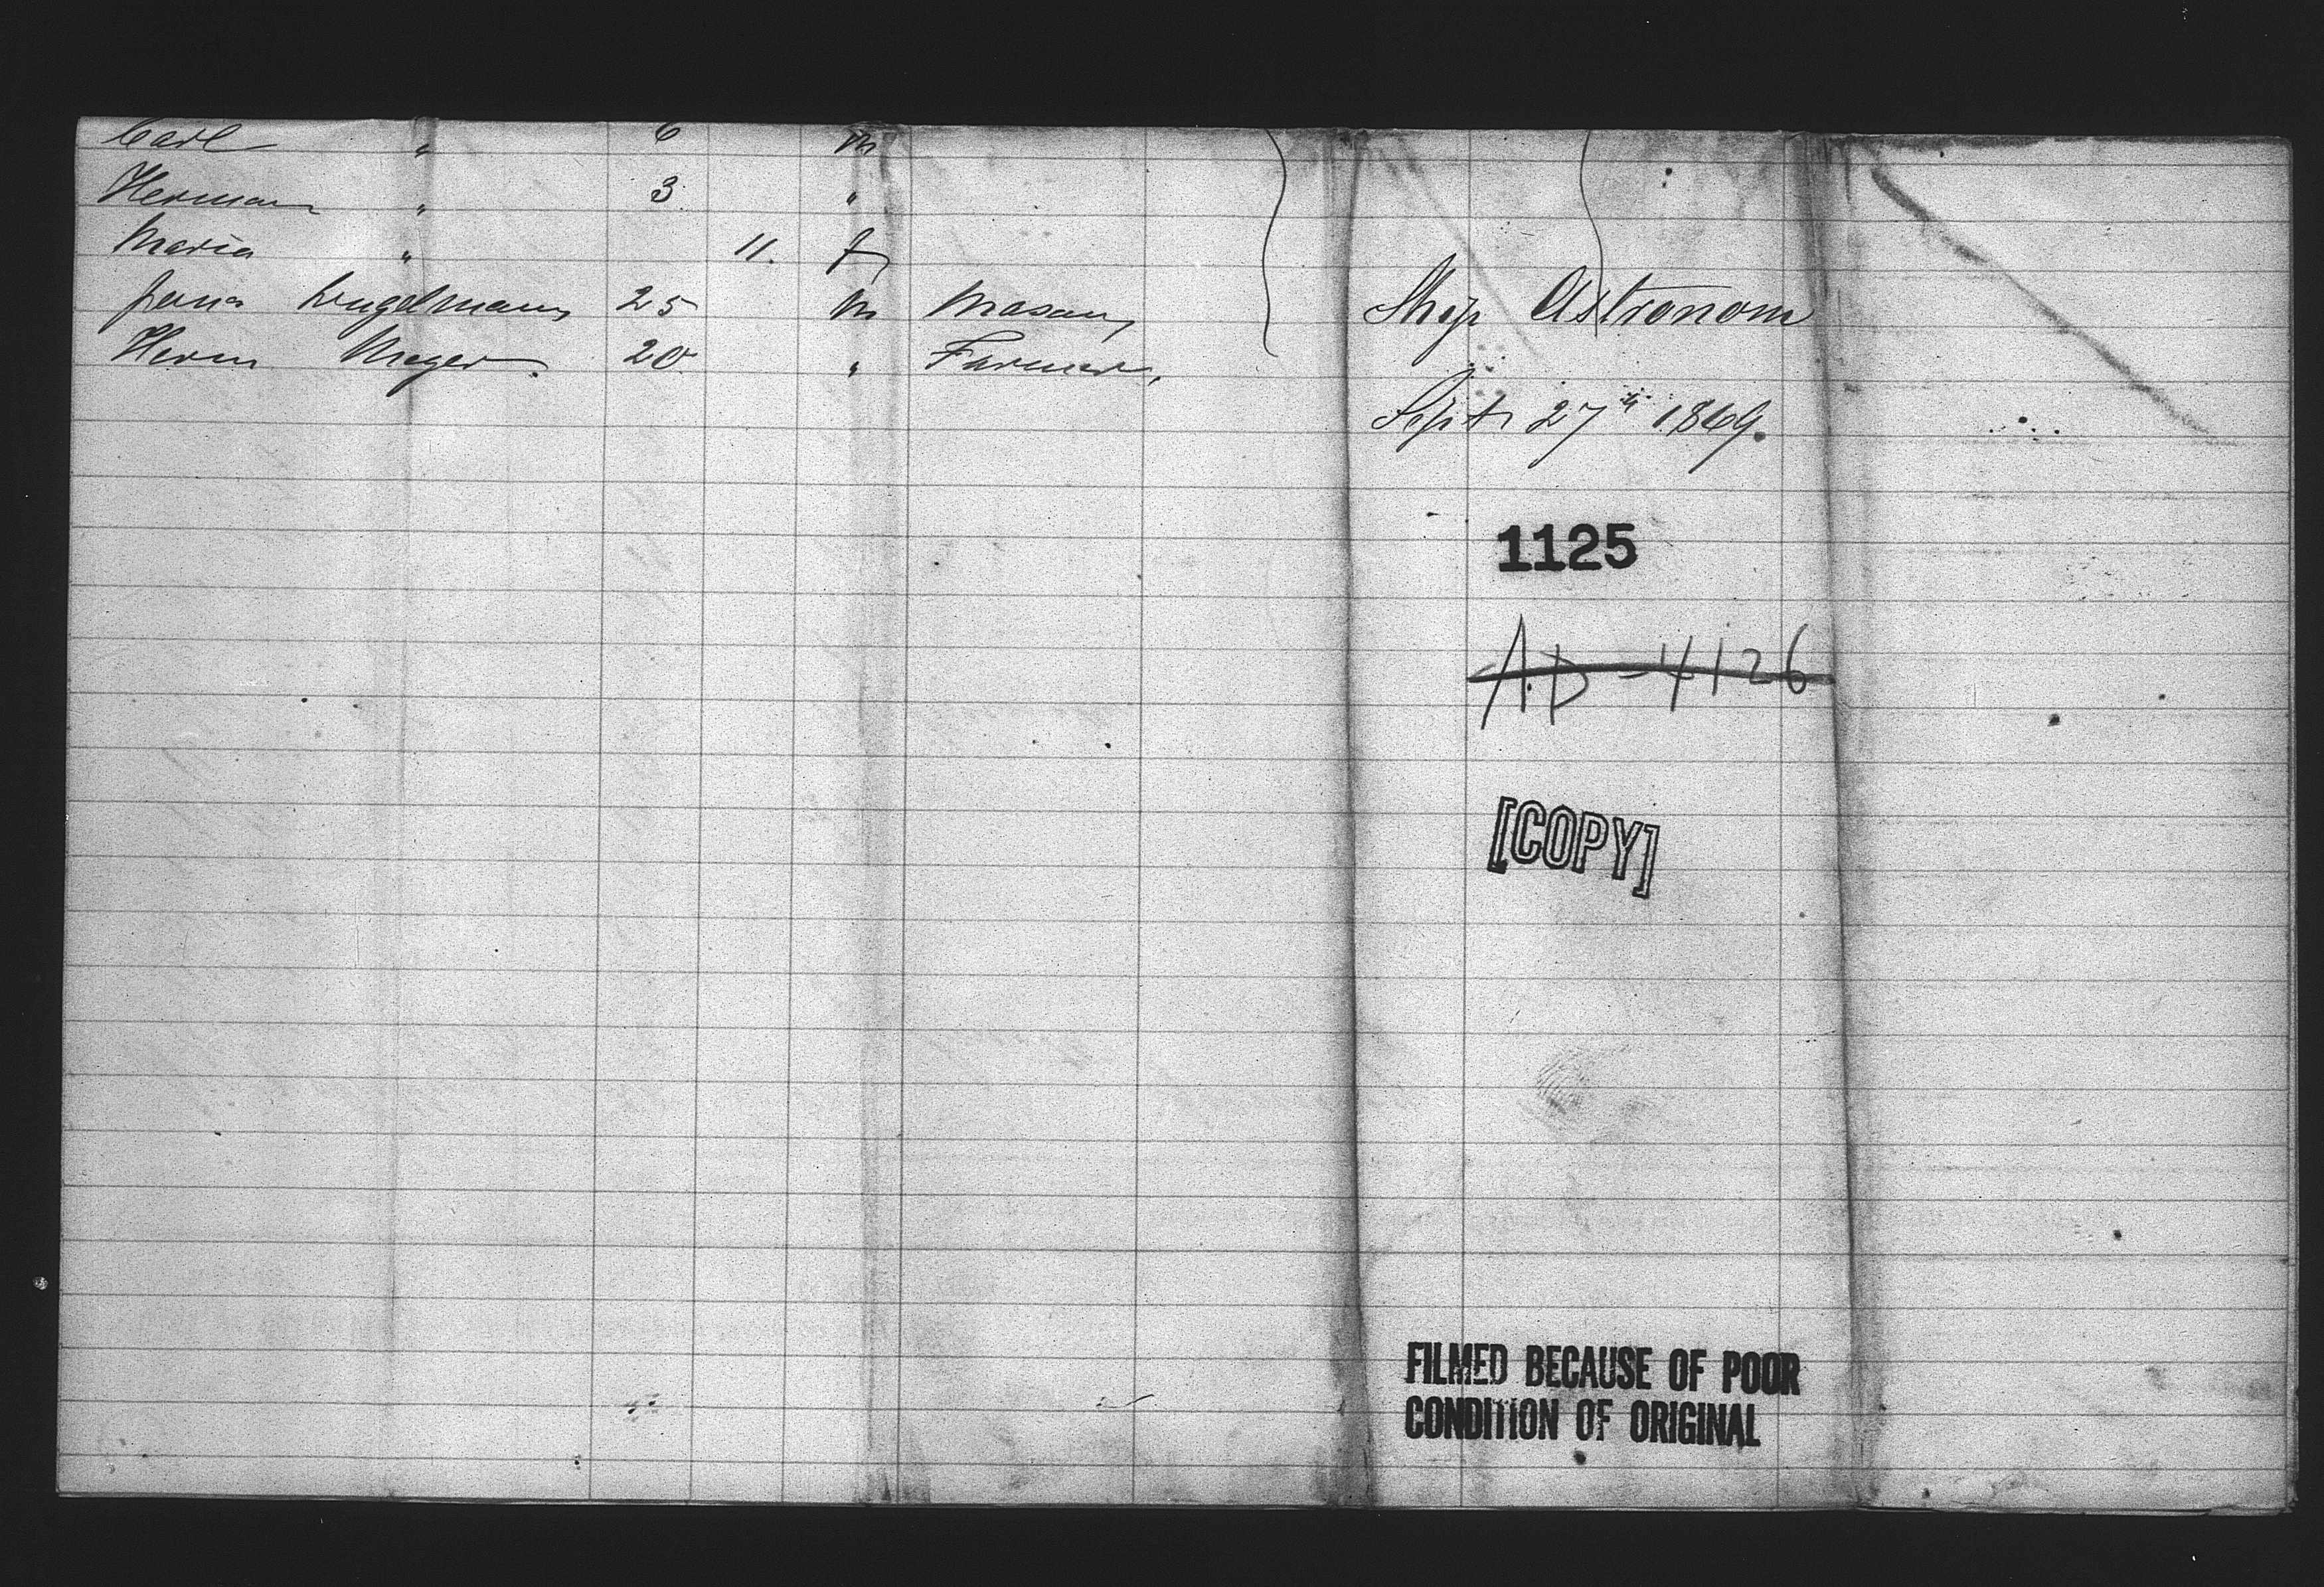 Carl " 6 m
Herman " 3. "
Maria " 11. f
25 m Mason
Herm Meyer. 20. " Farmer.
Ship Astronom
Sept 27th 1869.
1125
AD-4126
[COPY]
FILMED BECAUSE OF POOR
CONDITION OF ORIGINAL